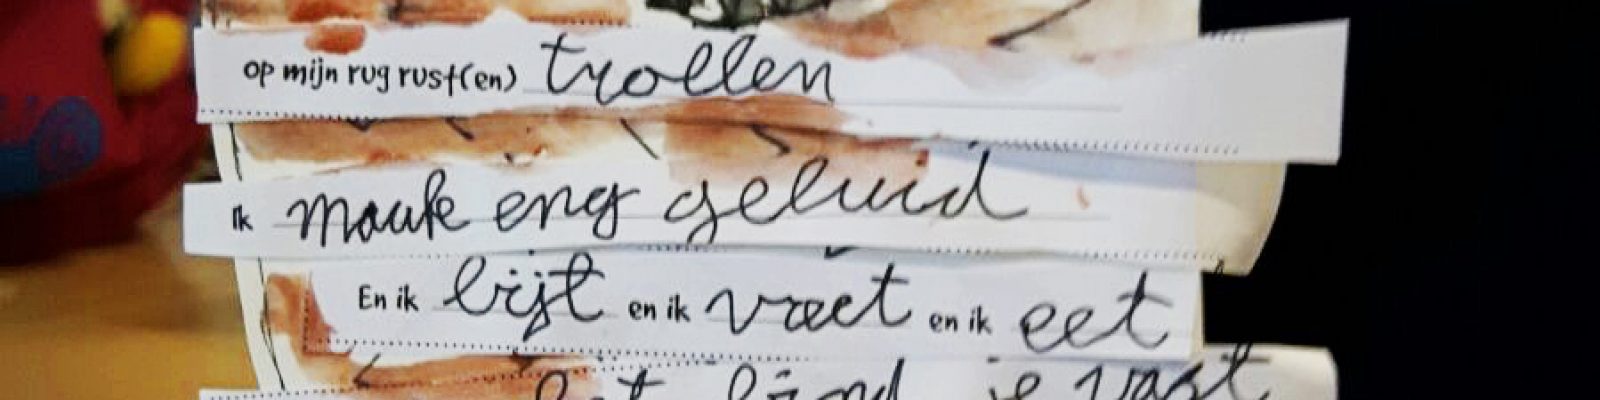 op mijn rug rust(en) trollen
Ik maak eng geluid
En ik bijt en ik vreet en ik eet
het bind je vast